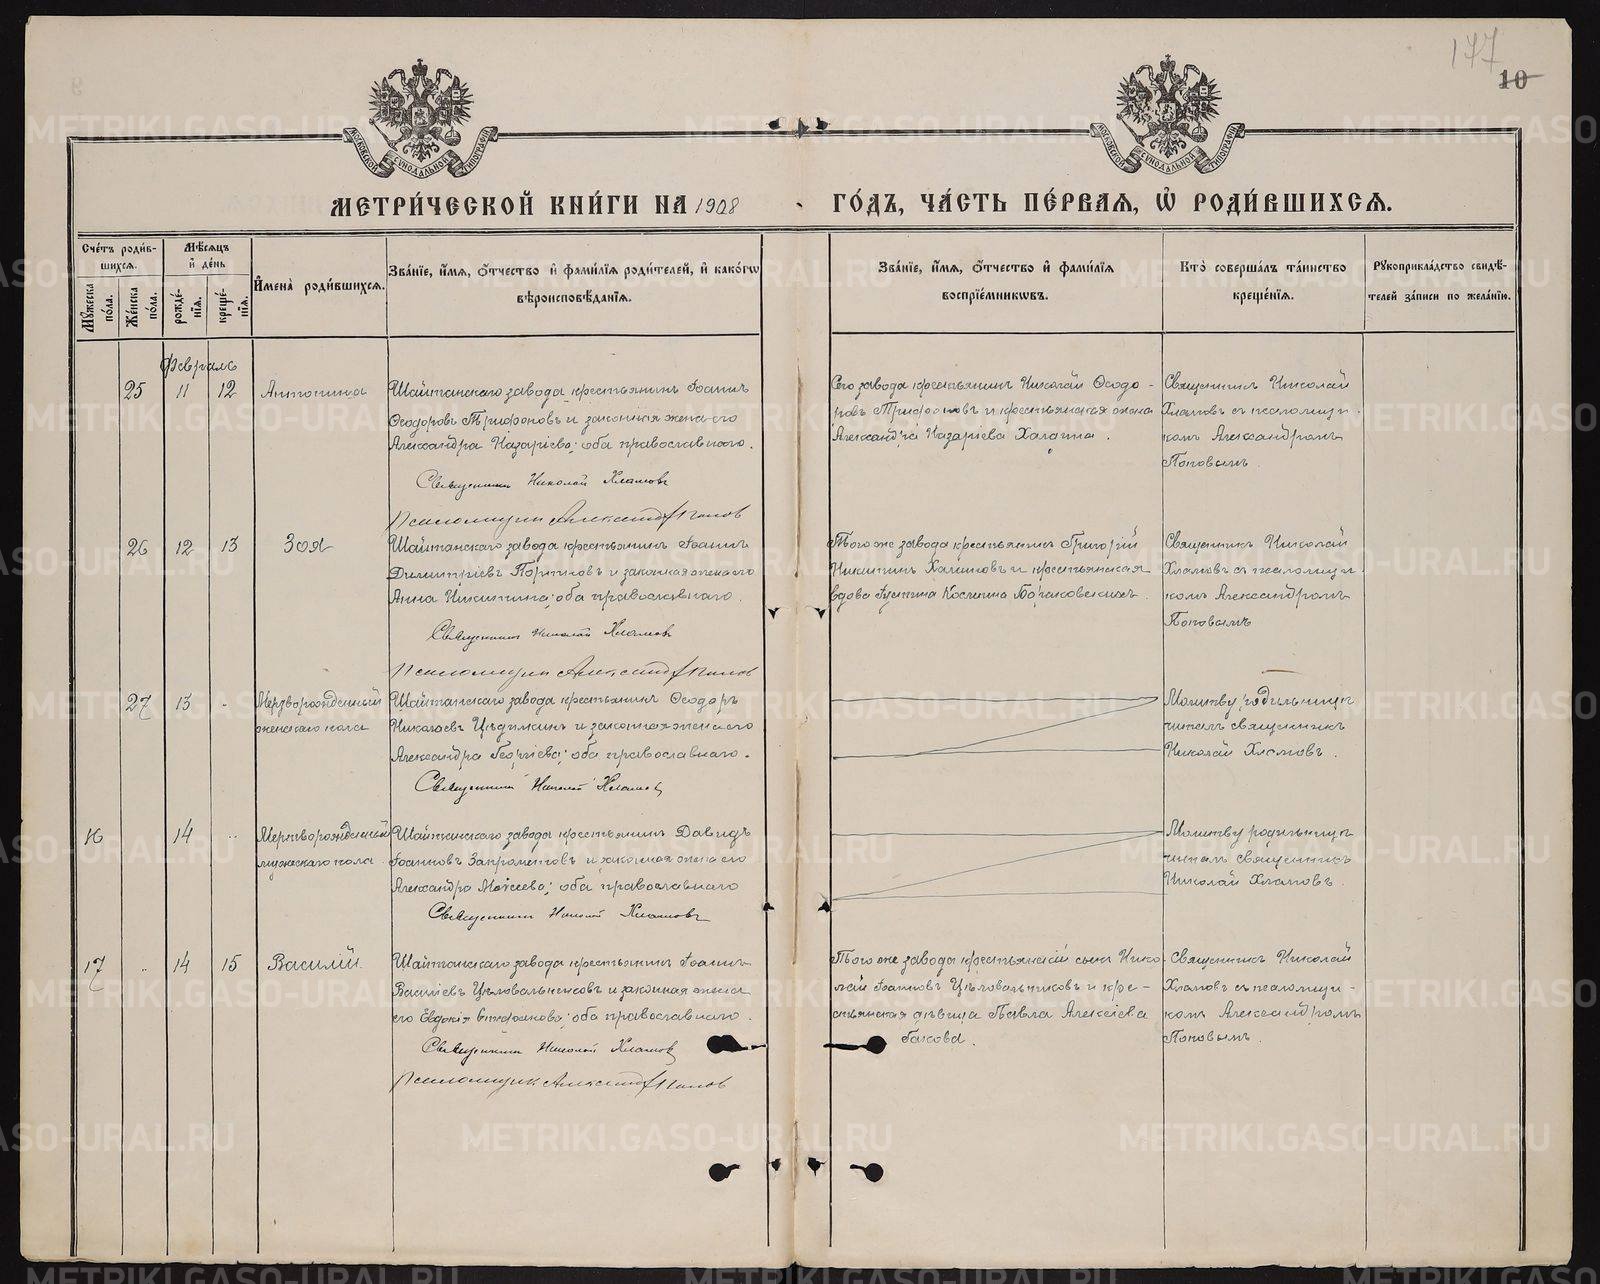 177
10
МОСКОВСКОЙ СѴНОДАЛЬНОЙ ТИПОГРАФІИ
МОСКОВСКОЙ СѴНОДАЛЬНОЙ ТИПОГРАФІИ
МЕТРИ́ЧЕСКОЙ КНИ́ГИ НА 1908 ГО́ДЪ, ЧА́СТЬ ПЕ́РВАѦ, Ѡ҆ РОДИ́ВШИХСѦ.
Сче́тъ роди́в-
шихсѧ.
Мѣ́сѧцъ
и҆ де́нь
Мꙋ́жеска по́ла.
Же́нска по́ла.
рожде́-нїѧ.
креще́-нїѧ.
И҆мена̀ роди́вшихсѧ.
Зва́нїе, и҆́мѧ, ѻ҆́тчество и҆ фами́лїѧ роди́телей, и҆ како́гѡ
вѣроисповѣ́данїѧ.
Зва́нїе, и҆́мѧ, ѻ҆́тчество и҆ фами́лїѧ
воспрїе́мникѡвъ.
Кто̀ соверша́лъ та́инство
креще́нїѧ.
Рꙋкоприкла́дство свидѣ́-
телей за́писи по жела́нїю.
Февраль
25 11 12 Антонина
Шайтанскаго завода крестьянинъ Іоаннъ
Ѳеодоровъ Трифоновъ и законная жена его
Александра Назаріева; оба православнаго.
Священникъ Николай Хламовъ
Псаломщик Александр Попов
Сего завода крестьянинъ Николай Ѳеодо-
ровъ Трифоновъ и крестьянская жена
Александра Назаріева Халдина.
Священникъ Николай
Хламовъ съ псаломщи-
комъ Александромъ
Поповымъ.
26 12 13 Зоя
Шайтанскаго завода крестьянинъ Іоаннъ
Димитріевъ и законная жена его
Анна Никитина; оба православнаго.
Священникъ Николай Хламовъ
Псаломщик Александр Попов
Того же завода крестьянинъ Григорій
Никитинъ и крестьянская
вдова Космина
Священникъ Николай
Хламовъ съ псаломщи-
комъ Александромъ
Поповымъ
27 13 - Мертворожденный
женскаго пола
Шайтанскаго завода крестьянинъ Ѳеодоръ
Николаевъ и законная жена его
Александра Георгіева; оба православнаго.
Священникъ Николай Хламовъ
Молитву родильницѣ
читалъ священникъ
Николай Хламовъ.
16 14 .. Мертворожденный
мужескаго пола
Шайтанскаго завода крестьянинъ Давидъ
Іоанновъ Запрометовъ и законная жена его
Александра Моисеева; оба православнаго
Священникъ Николай Хламовъ
Молитву родильницѣ
читалъ священникъ
Николай Хламовъ.
17 .. 14 15 Василій
Шайтанскаго завода крестьянинъ Іоаннъ
Василіевъ Цѣловальниковъ и законная жена
его Евдокія Стефанова; оба православнаго.
Священникъ Николай Хламовъ
Псаломщик Александр Попов
Того же завода крестьянскій сынъ Нико-
лай Іоанновъ Цѣловальниковъ и кре-
стьянская дѣвица Павла Алексіева
Священникъ Николай
Хламовъ съ псаломщи-
комъ Александромъ
Поповымъ.
METRIKI.GASO-URAL.RU